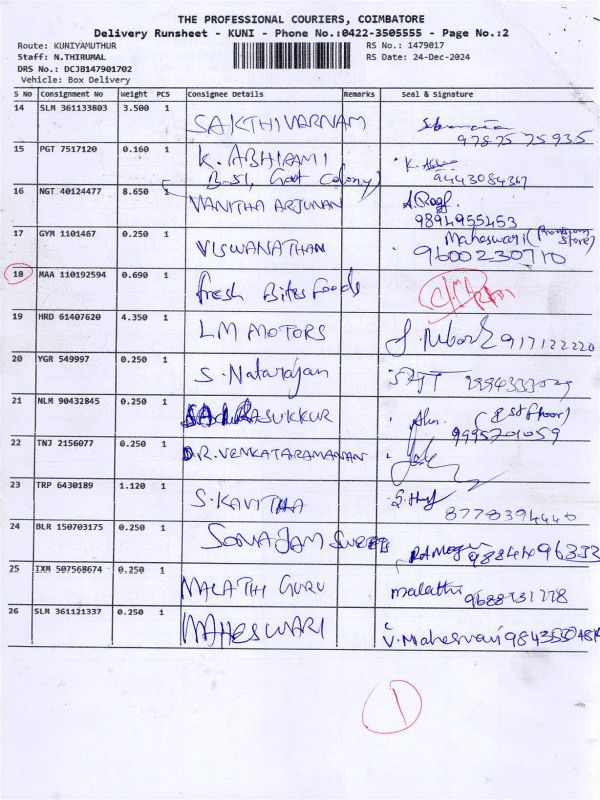 THE PROFESSIONAL COURIERS, COIMBATORE
Delivery Runsheet - KUNI - Phone No.:0422-3505555 - Page No.:2
Route: KUNIYAMUTHUR RS No.: 1479017
Staff: N.THIRUMAL RS Date: 24-Dec-2024
DRS No.: DCJB147901702
Vehicle: Box Delivery
S No Consignment No Weight PCS Consignee Details Remarks Seal & Signature
14 SLM 361133803 3.500 1 SAKTHIVARNAM
97875 75935
15 PGT 7517120 0.160 1 K. ABHIRAMI K.
B-51, Govt Colony) 9443084367
16 NGT 40124477 8.650 1 VANITHA ARJUNAN
9894955453
17 GYM 1101467 0.250 1 VISWANATHAN Maheswari (Provision Store)
9600230710
18 MAA 110192594 0.690 1 Fresh Bites Foods
19 HRD 61407620 4.350 1 LM MOTORS 917122220
20 YGR 549997 0.250 1 S. Natarajan
21 NLM 90432845 0.250 1 (1st Floor)
9995701059
22 TNJ 2156077 0.250 1 D.R. VENKATARAMANAN
23 TRP 6430189 1.120 1 S. KAVITHA
8778394440
24 BLR 150703175 0.250 1 SONA JAM SWEETS
25 IXM 507568674 0.250 1 MALATHI GURU malathi
26 SLM 361121337 0.250 1 MAHESWARI V. Maheswari
1